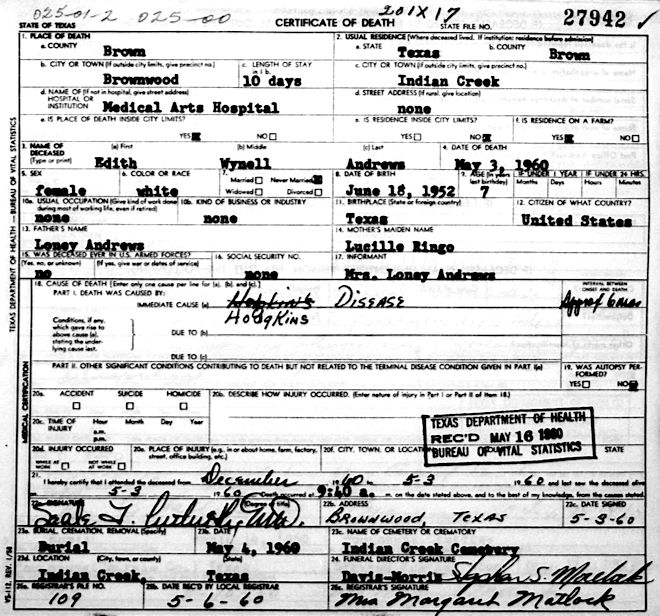 025-01-2 025-00 201X17
STATE OF TEXAS CERTIFICATE OF DEATH STATE FILE NO. 27942
1. PLACE OF DEATH 2. USUAL RESIDENCE (Where deceased lived. If institution: residence before admission)
a. COUNTY Brown a. STATE Texas b. COUNTY Brown
b. CITY OR TOWN (If outside city limits, give precinct no.) c. LENGTH OF STAY in 1 b. c. CITY OR TOWN (If outside city limits, give precinct no.)
Brownwood 10 days Indian Creek
d. NAME OF (If not in hospital, give street address) d. STREET ADDRESS (If rural, give location)
HOSPITAL OR INSTITUTION Medical Arts Hospital none
e. IS PLACE OF DEATH INSIDE CITY LIMITS? e. IS RESIDENCE INSIDE CITY LIMITS? f. IS RESIDENCE ON A FARM?
YES NO YES NO YES NO
3. NAME OF DECEASED (a) First (b) Middle (c) Last 4. DATE OF DEATH
(Type or print) Edith Wynell Andrews May 3, 1960
5. SEX 6. COLOR OR RACE 7. Married Never Married 8. DATE OF BIRTH 9. AGE (In years last birthday) IF UNDER 1 YEAR IF UNDER 24 HRS.
Widowed Divorced Months Days Hours Minutes
female white June 18, 1952 7
10a. USUAL OCCUPATION (Give kind of work done during most of working life, even if retired) 10b. KIND OF BUSINESS OR INDUSTRY 11. BIRTHPLACE (State or foreign country) 12. CITIZEN OF WHAT COUNTRY?
none none Texas United States
13. FATHER'S NAME 14. MOTHER'S MAIDEN NAME
Loney Andrews Lucille Ringo
15. WAS DECEASED EVER IN U.S. ARMED FORCES? 16. SOCIAL SECURITY NO. 17. INFORMANT
(Yes, no, or unknown) (If yes, give war or dates of service)
no none Mrs. Loney Andrews
18. CAUSE OF DEATH [Enter only one cause per line for (a), (b), and (c).] INTERVAL BETWEEN ONSET AND DEATH
PART I. DEATH WAS CAUSED BY:
IMMEDIATE CAUSE (a) DISEASE
HODGKINS
Conditions, if any, which gave rise to above cause (a), stating the underlying cause last.
DUE TO (b)
DUE TO (c)
PART II. OTHER SIGNIFICANT CONDITIONS CONTRIBUTING TO DEATH BUT NOT RELATED TO THE TERMINAL DISEASE CONDITION GIVEN IN PART I(a) 19. WAS AUTOPSY PERFORMED?
YES NO
20a. ACCIDENT SUICIDE HOMICIDE 20b. DESCRIBE HOW INJURY OCCURRED. (Enter nature of injury in Part I or Part II of Item 18.)
20c. TIME OF INJURY Hour a.m. p.m. Month Day Year
TEXAS DEPARTMENT OF HEALTH
REC'D MAY 16 1960
BUREAU OF VITAL STATISTICS
20d. INJURY OCCURRED 20e. PLACE OF INJURY (e.g., in or about home, farm, factory, street, office building, etc.) 20f. CITY, TOWN, OR LOCATION STATE
WHILE AT WORK NOT WHILE AT WORK
21. I hereby certify that I attended the deceased from December 1960 to 5-3 1960 and last saw the deceased alive
on 5-3 1960. Death occurred at 9:40 a. m. on the date stated above, and to the best of my knowledge, from the causes stated.
22a. SIGNATURE (Degree or title) 22b. ADDRESS 22c. DATE SIGNED
BROWNWOOD, TEXAS 5-3-60
23a. BURIAL, CREMATION, REMOVAL (Specify) 23b. DATE 23c. NAME OF CEMETERY OR CREMATORY
Burial May 4, 1960 Indian Creek Cemetery
23d. LOCATION (City, town, or county) (State) 24. FUNERAL DIRECTOR'S SIGNATURE
Indian Creek, Texas Davis-Morris Stephen S. Matlock
25a. REGISTRAR'S FILE NO. 25b. DATE REC'D BY LOCAL REGISTRAR 25c. REGISTRAR'S SIGNATURE
109 5-6-60 Mrs Margaret Matlock
TEXAS DEPARTMENT OF HEALTH — BUREAU OF VITAL STATISTICS
MEDICAL CERTIFICATION
VS-112, REV. 1/58